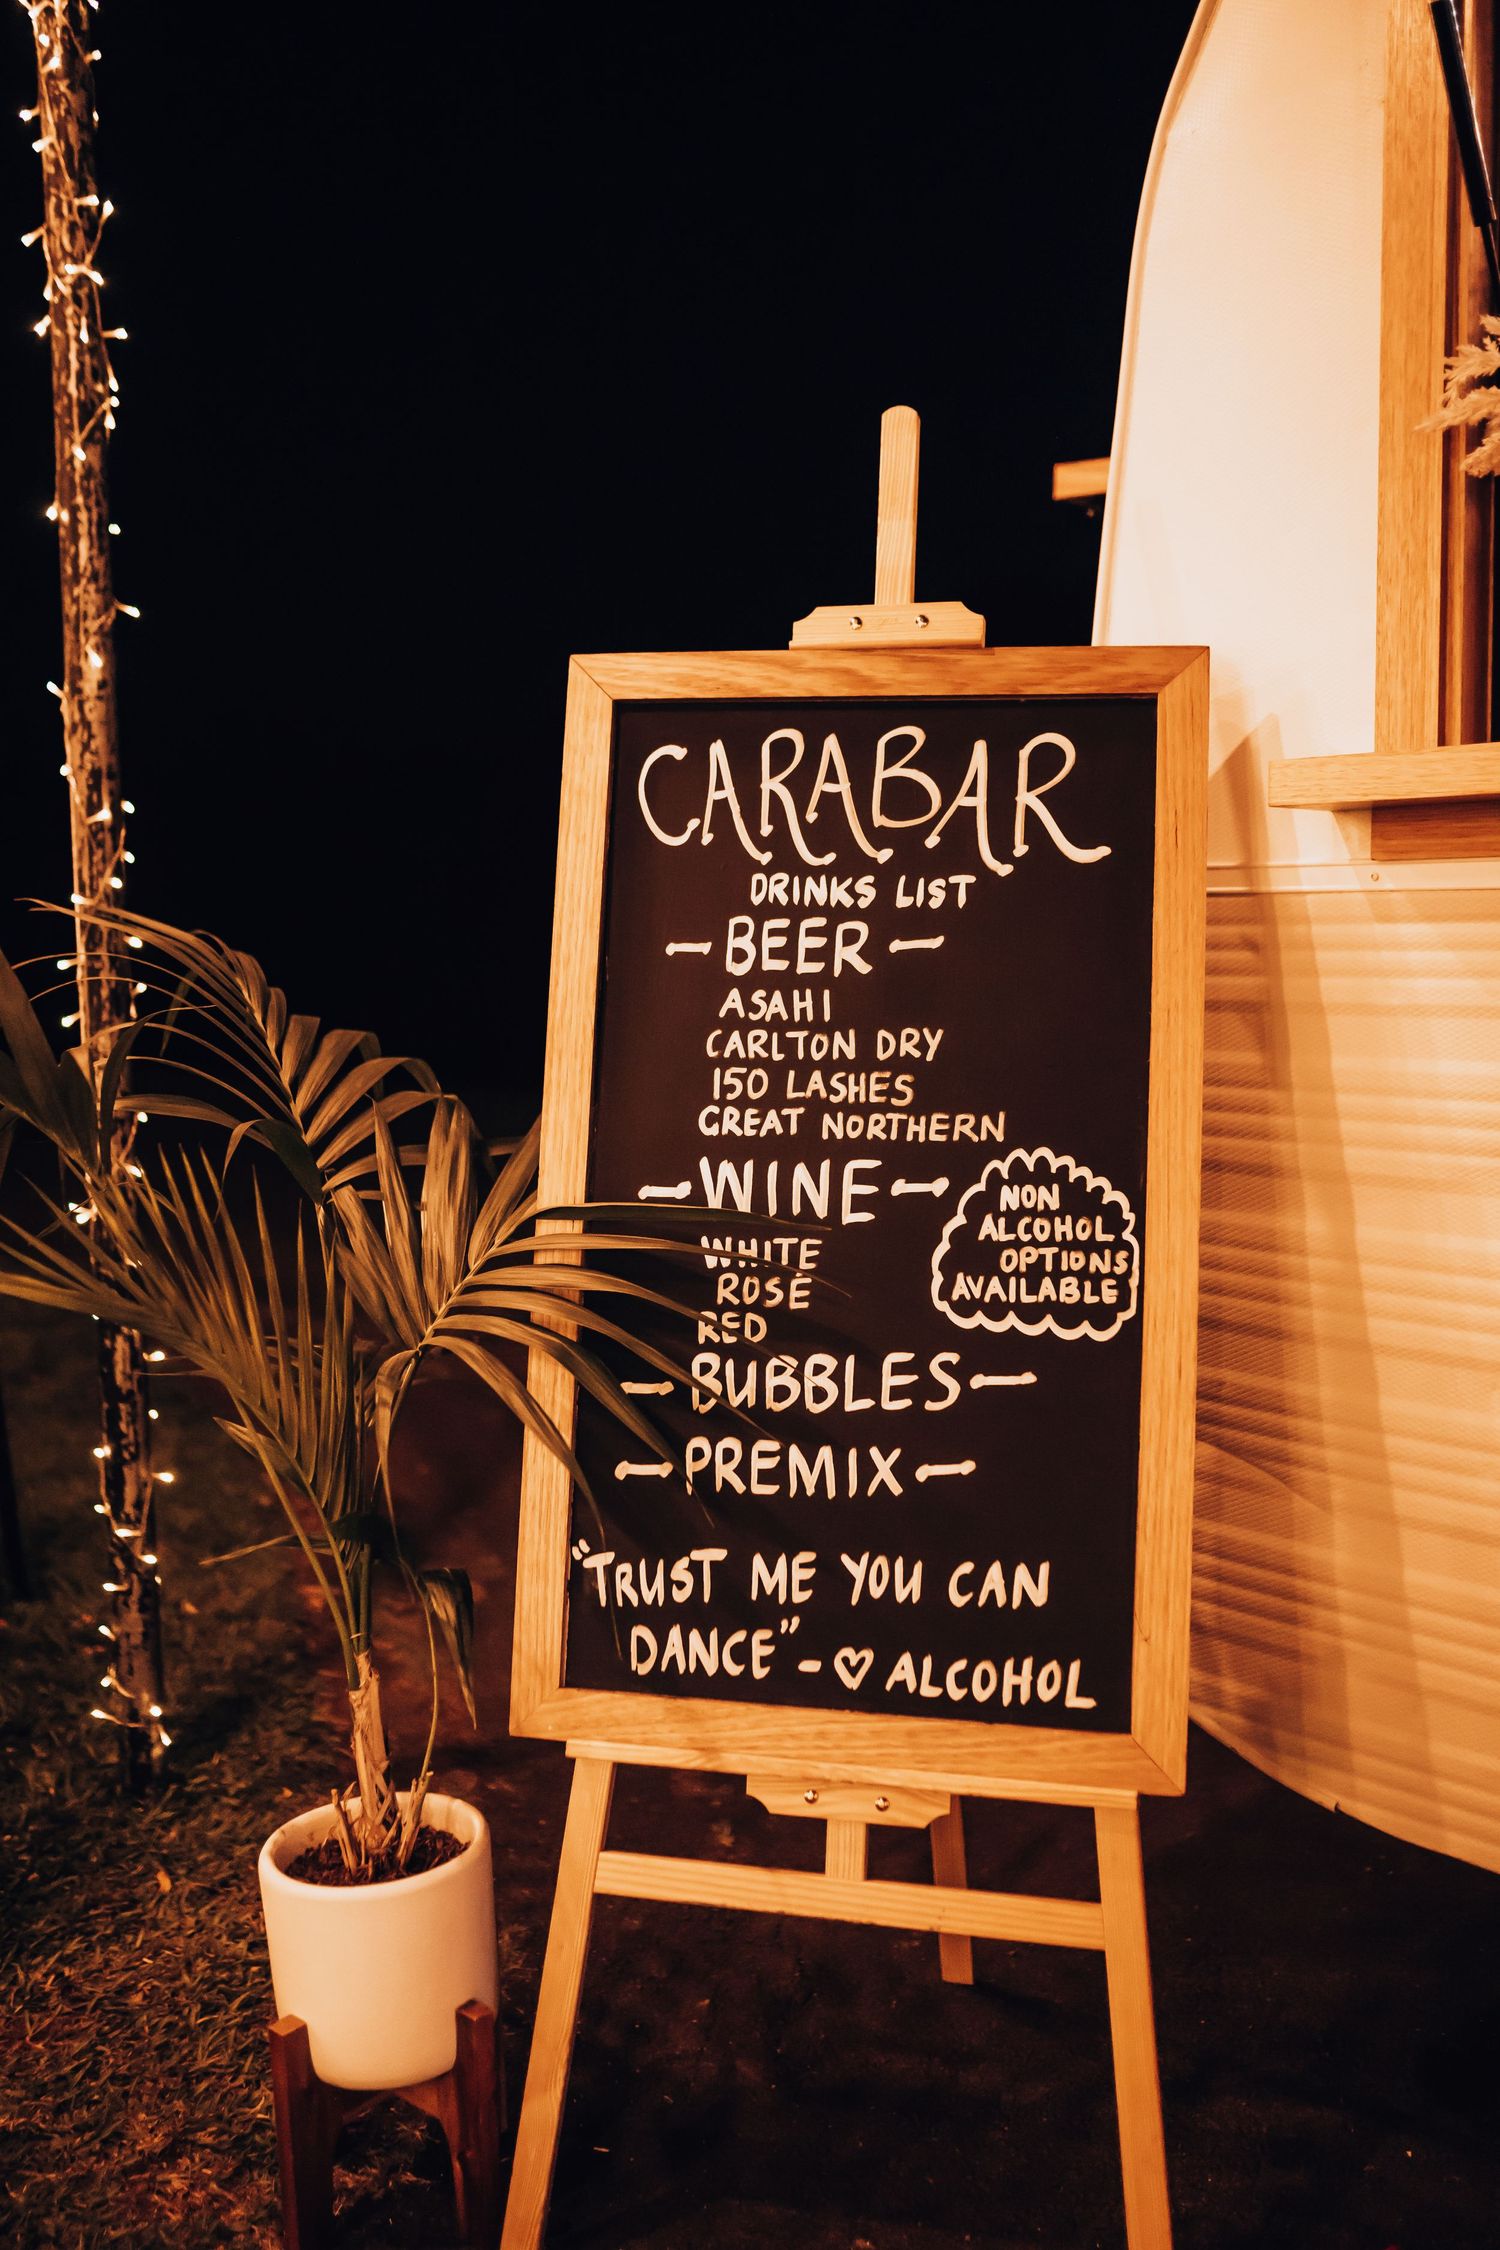 CARABAR
DRINKS LIST
- BEER -
ASAHI
CARLTON DRY
150 LASHES
GREAT NORTHERN
- WINE -
WHITE
ROSÉ
RED
NON
ALCOHOL
OPTIONS
AVAILABLE
- BUBBLES -
- PREMIX -
"TRUST ME YOU CAN
DANCE" - ♡ ALCOHOL